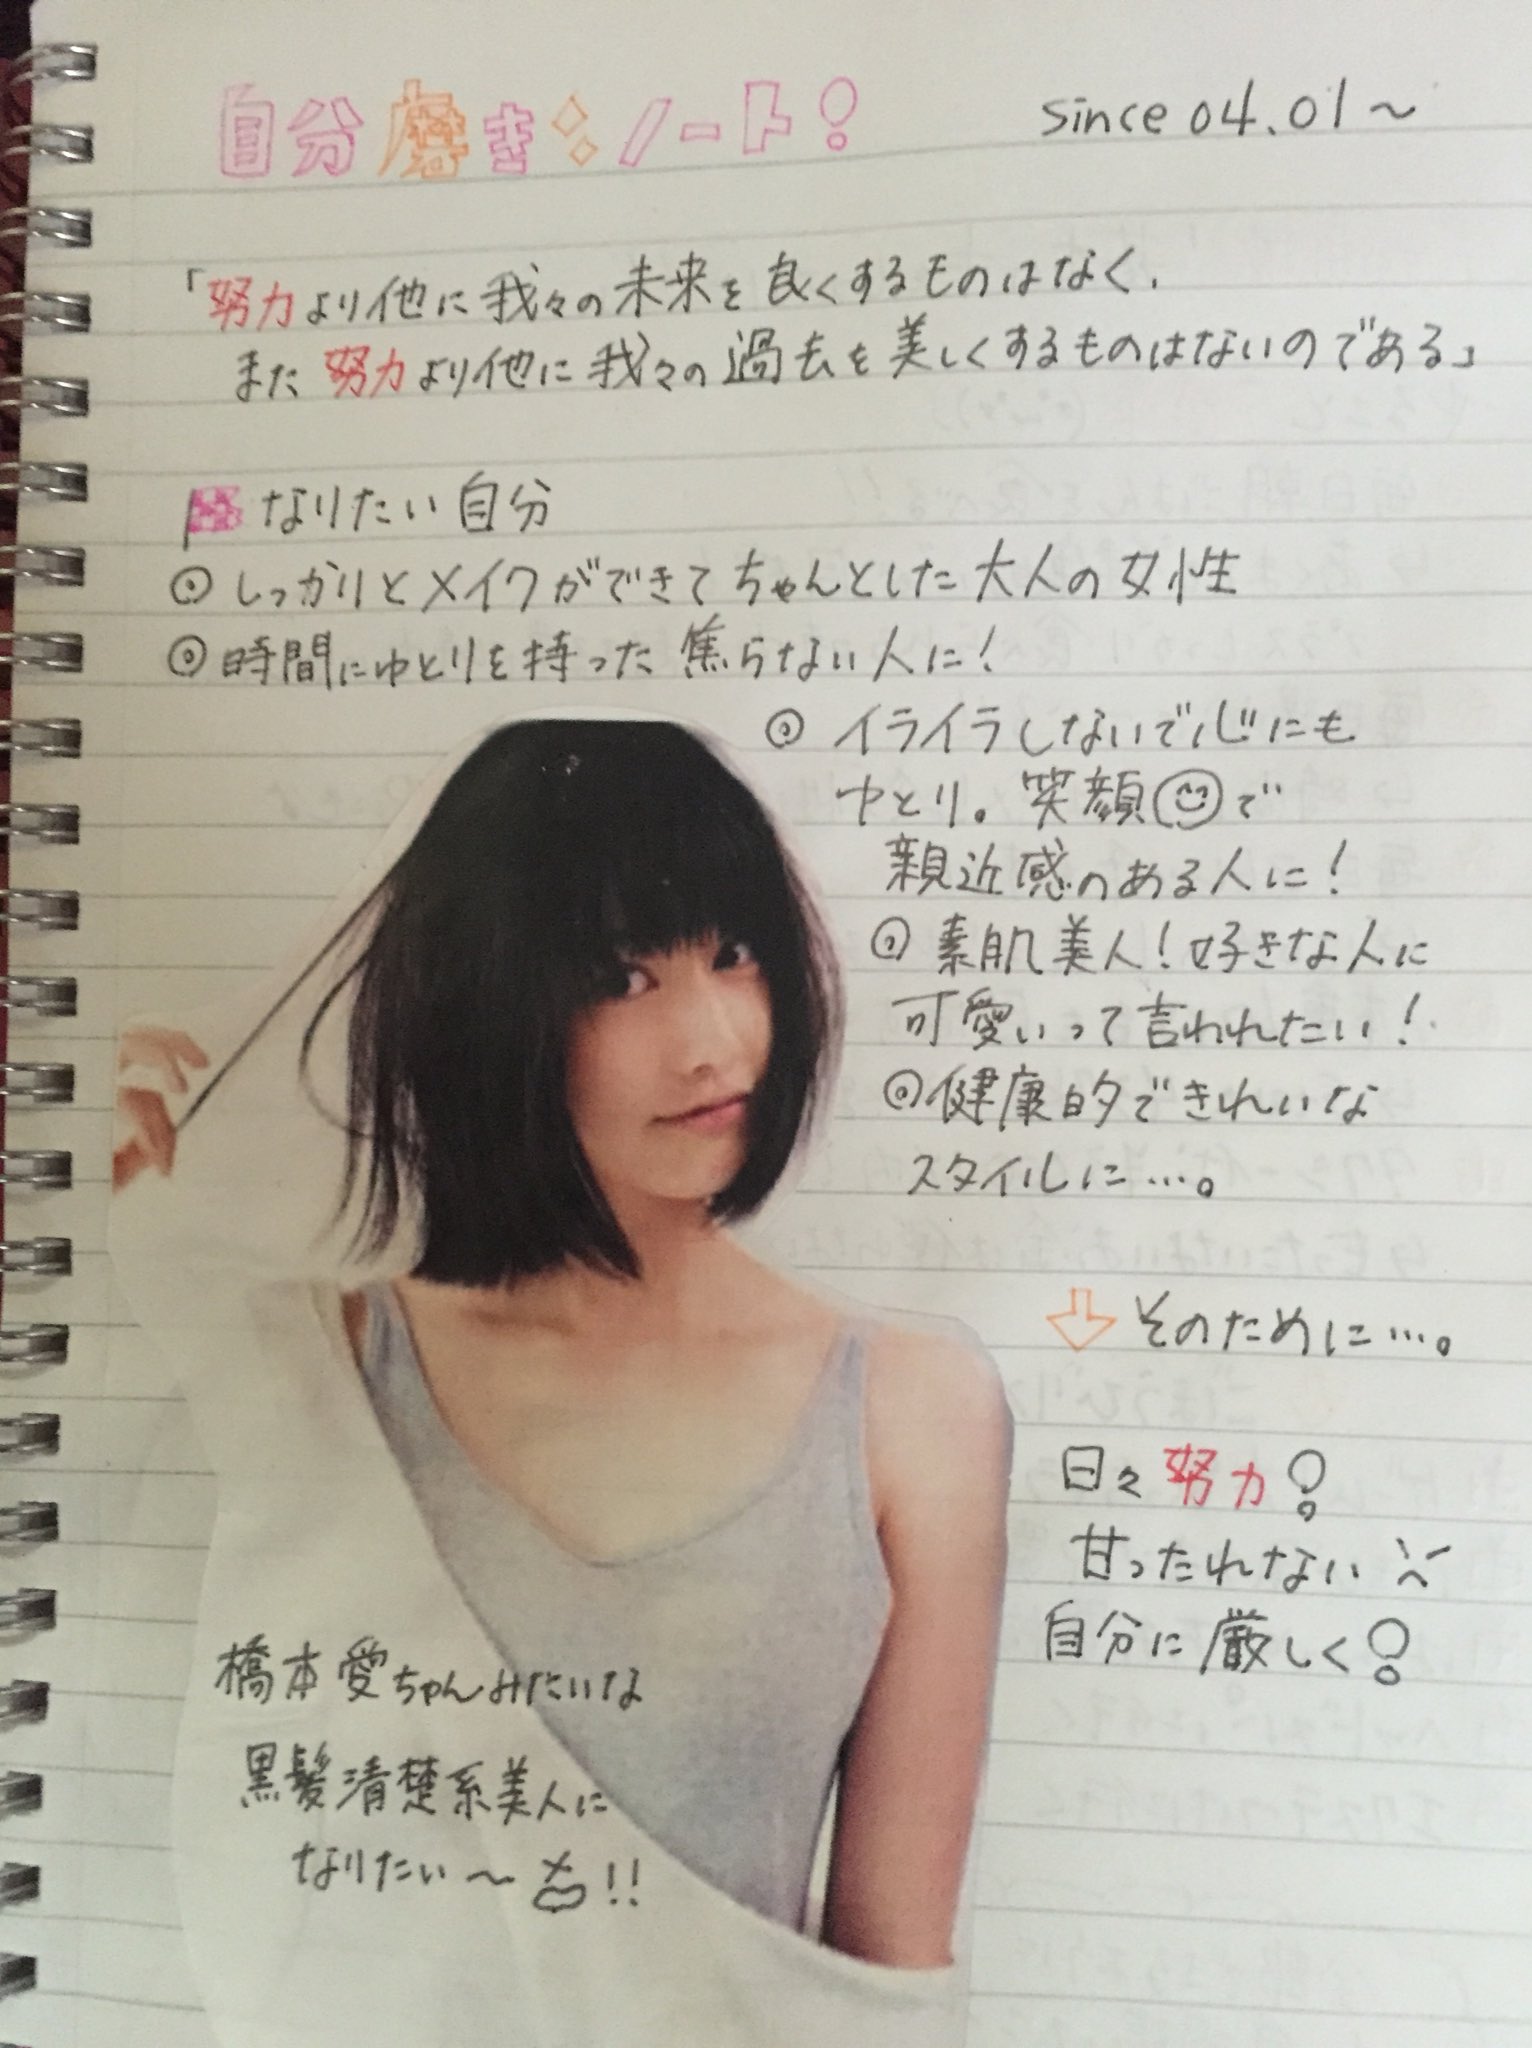 自分磨きノート!
since 04.01〜
「努力より他に我々の未来を良くするものはなく、
また努力より他に我々の過去を美しくするものはないのである」
なりたい自分
◎しっかりとメイクができてちゃんとした大人の女性
◎時間にゆとりを持った焦らない人に!
◎イライラしないで心にも
ゆとり。笑顔で
親近感のある人に!
◎素肌美人!好きな人に
可愛いって言われたい!
◎健康的できれいな
スタイルに…。
そのために…。
日々努力!
甘ったれない
自分に厳しく!
橋本愛ちゃんみたいな
黒髪清楚系美人に
なりたい〜!!